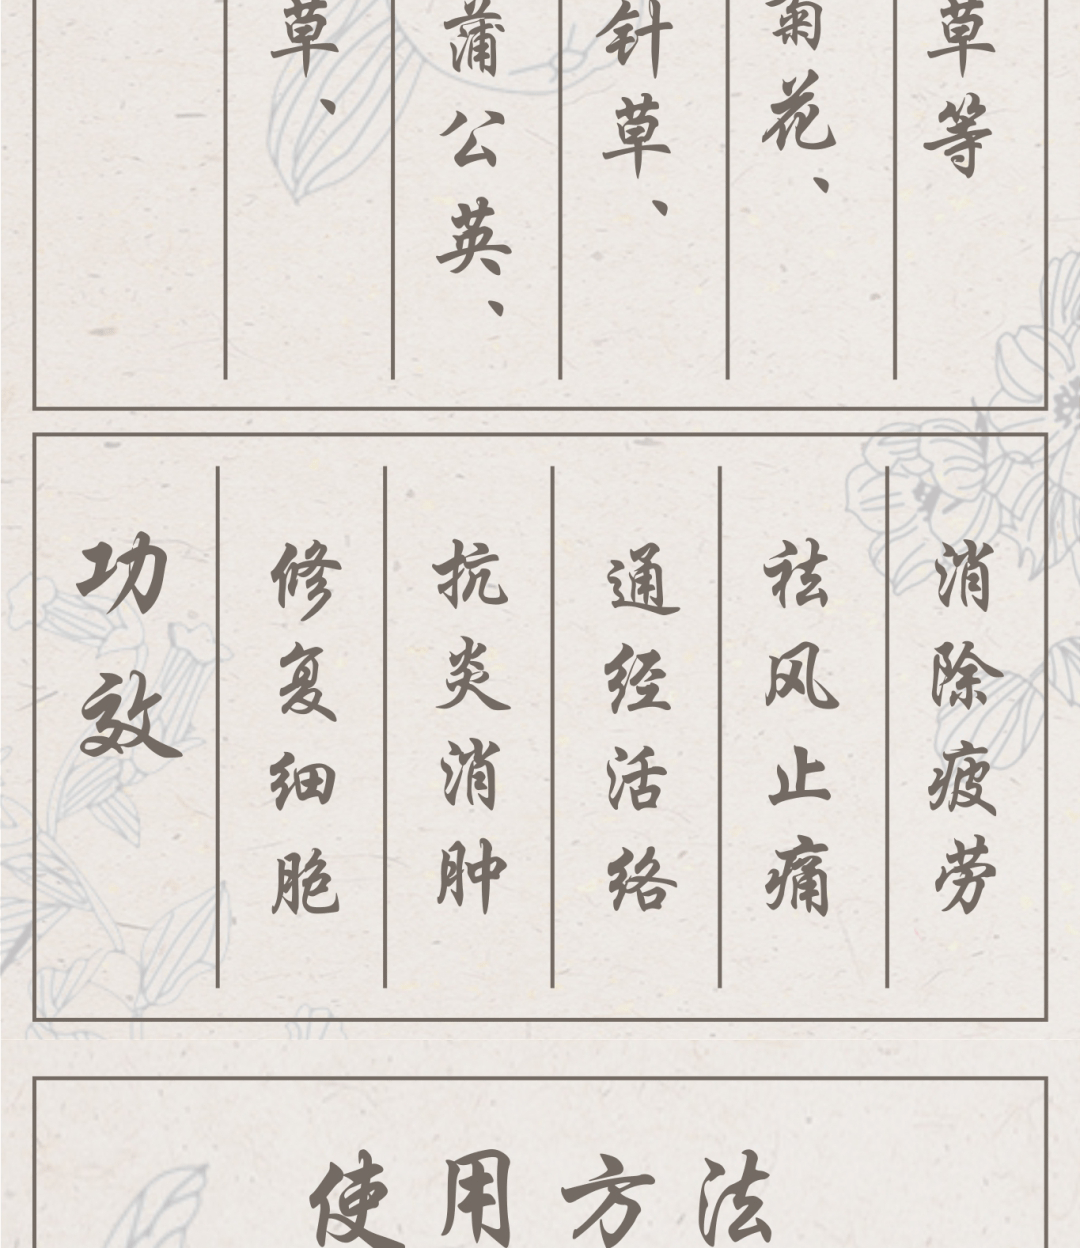 草、
蒲公英、
针草、
菊花、
草等
功效
修复细胞
抗炎消肿
通经活络
祛风止痛
消除疲劳
使用方法